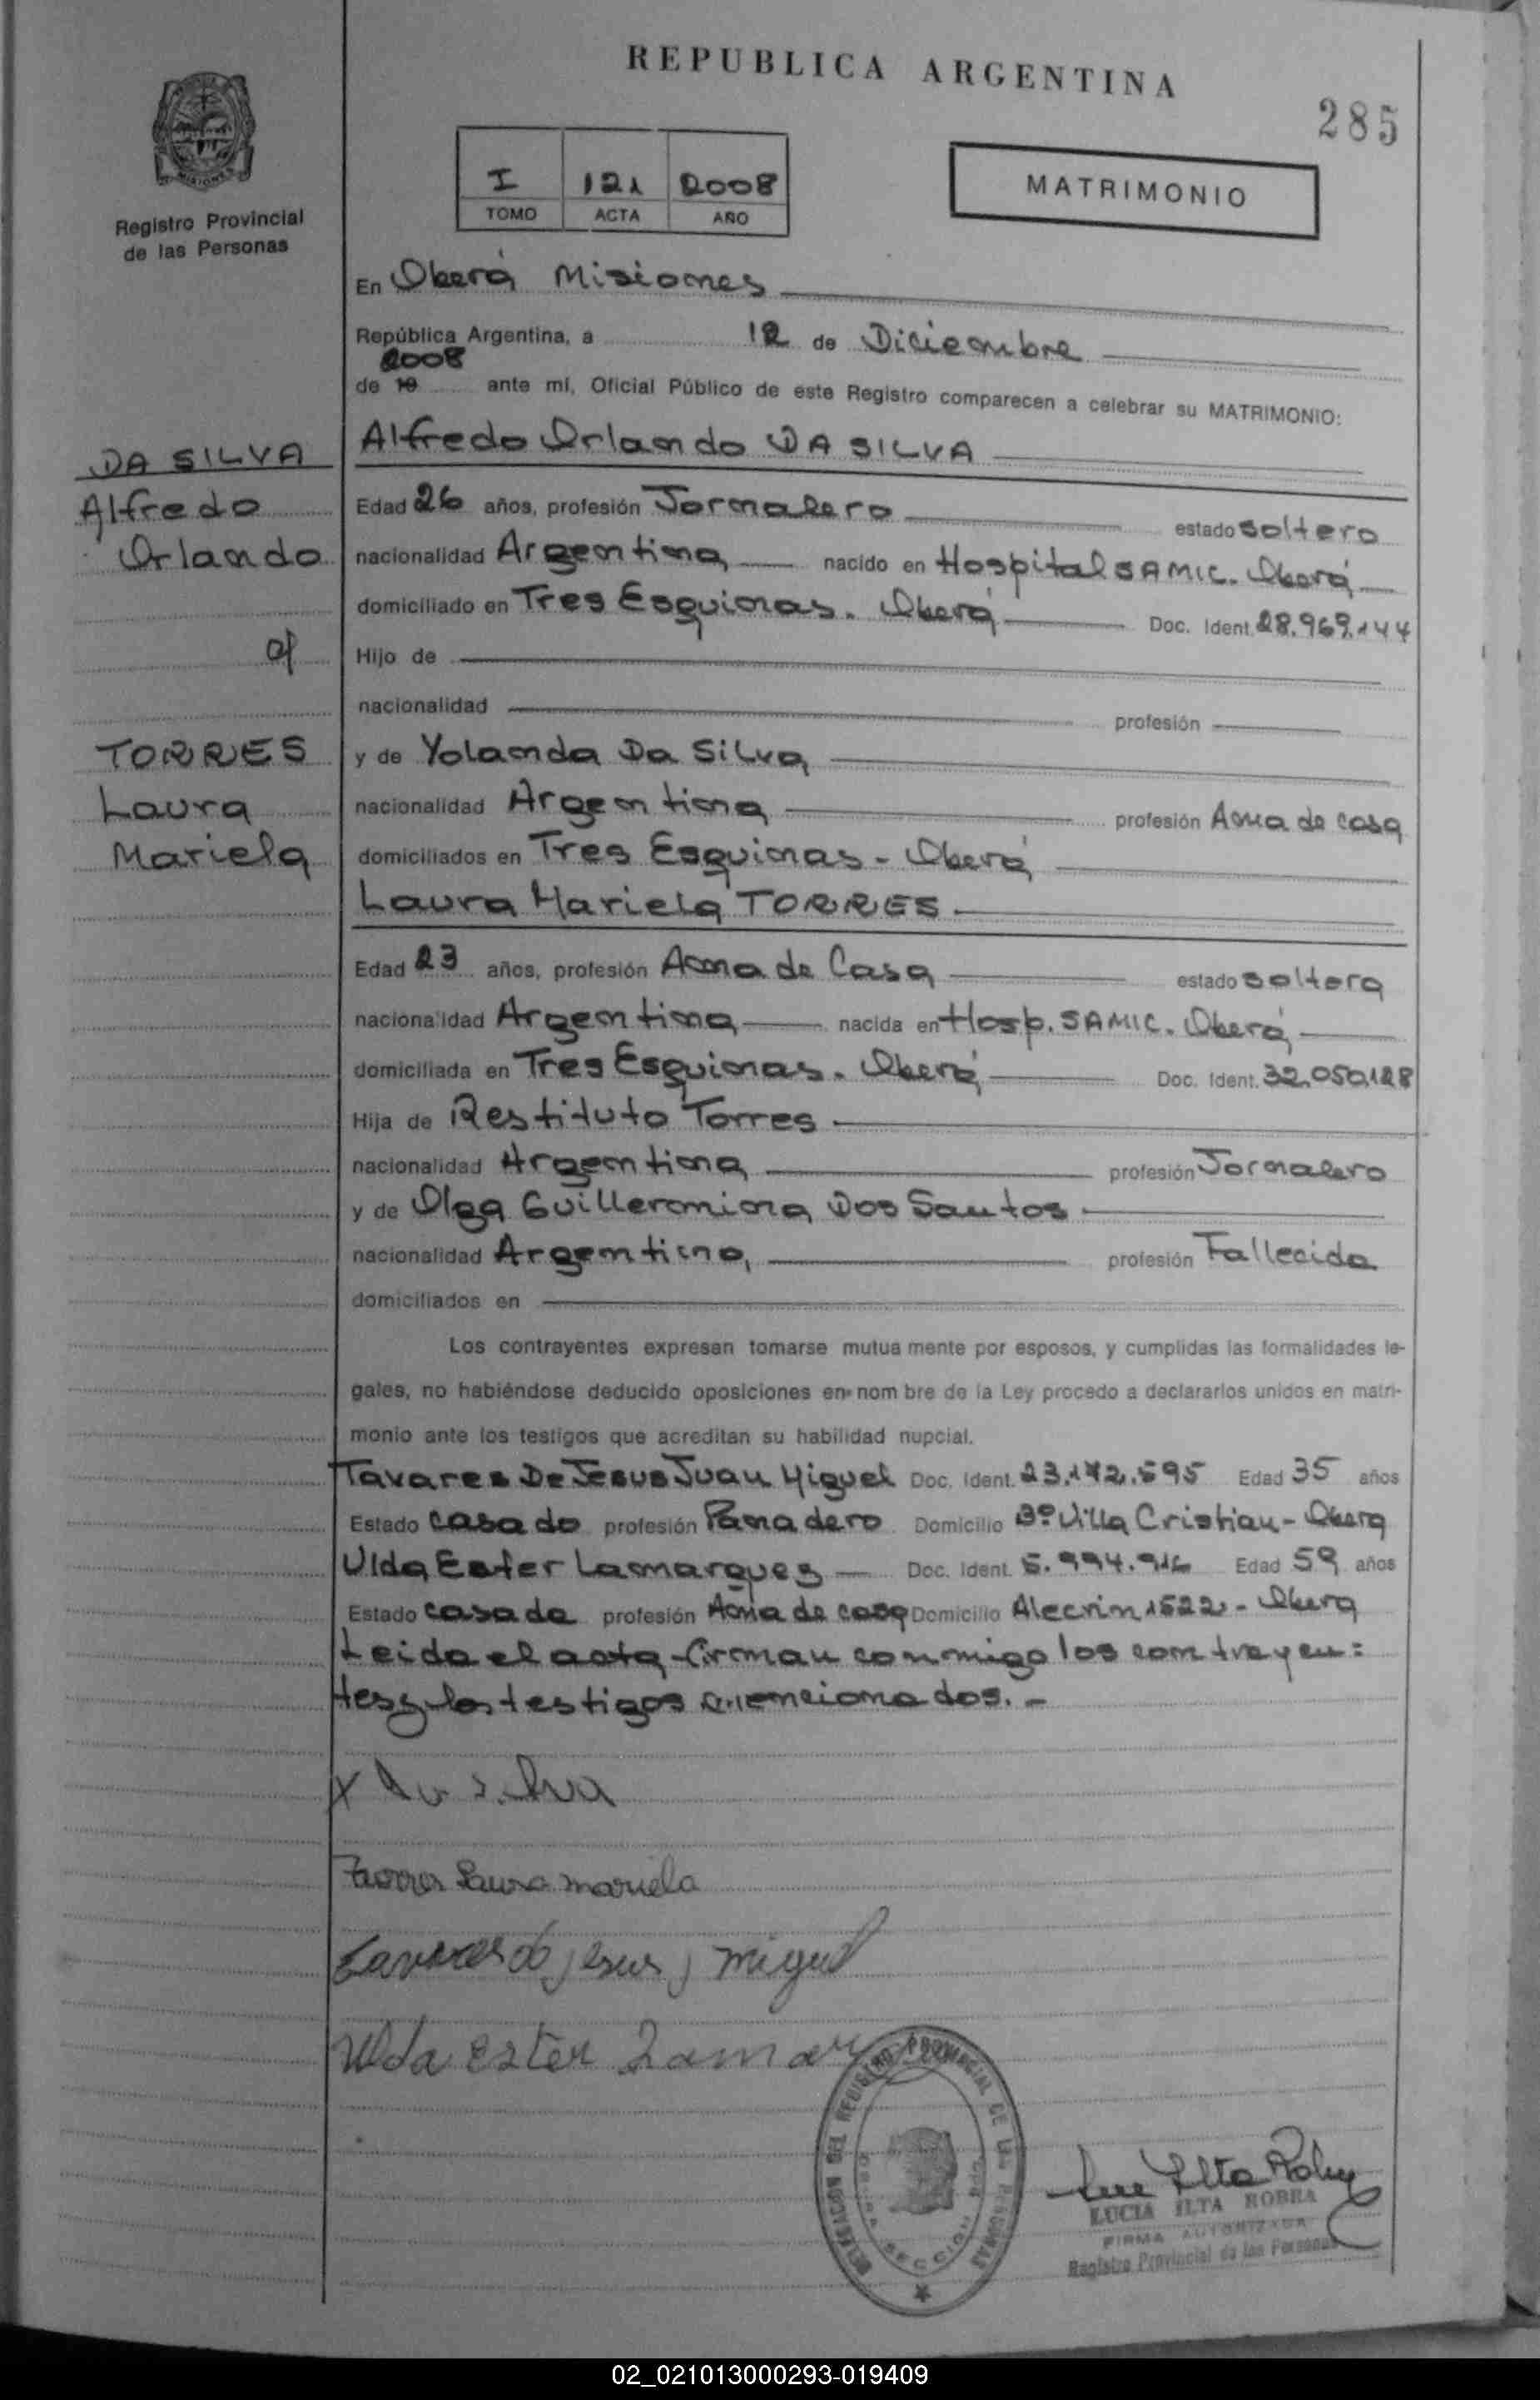 REPUBLICA ARGENTINA
285
Registro Provincial
de las Personas
I 121 2008
TOMO ACTA AÑO
MATRIMONIO
En Oberá Misiones
República Argentina, a 12 de Diciembre
2008
de 19 ante mí, Oficial Público de este Registro comparecen a celebrar su MATRIMONIO:
DA SILVA
Alfredo
Orlando
c/
TORRES
Laura
Mariela
Alfredo Orlando DA SILVA
Edad 26 años, profesión Jornalero estado soltero
nacionalidad Argentina nacido en Hospital SAMIC. Oberá
domiciliado en Tres Esquinas. Oberá Doc. Ident. 28.969.144
Hijo de
nacionalidad profesión
y de Yolanda Da Silva
nacionalidad Argentina profesión Ama de casa
domiciliados en Tres Esquinas - Oberá
Laura Mariela TORRES
Edad 23 años, profesión Ama de Casa estado soltera
nacionalidad Argentina nacida en Hosp. SAMIC. Oberá
domiciliada en Tres Esquinas. Oberá Doc. Ident. 32.050.128
Hija de Restituto Torres
nacionalidad Argentina profesión Jornalero
y de Olga Guillermina Dos Santos
nacionalidad Argentina profesión Fallecida
domiciliados en
Los contrayentes expresan tomarse mutua mente por esposos, y cumplidas las formalidades le-
gales, no habiéndose deducido oposiciones en nom bre de la Ley procedo a declararlos unidos en matri-
monio ante los testigos que acreditan su habilidad nupcial.
Tavares De Jesus Juan Miguel Doc. Ident. 23.142.595 Edad 35 años
Estado casado profesión Panadero Domicilio Bº Villa Cristian - Oberá
Ulda Ester Lamarquez Doc. Ident. 5.994.916 Edad 59 años
Estado casada profesión Ama de casa Domicilio Alecrin 1522 - Oberá
Leida el acta firman conmigo los contrayen:
tes y los testigos mencionados. -
x Da Silva
Torres Laura mariela
Tavares de jesus j miguel
Ulda Ester Lamar
DELEGACION DEL REGISTRO PROVINCIAL DE LAS PERSONAS
SECCION
LUCIA ILTA ROBRA
FIRMA AUTORIZADA
Registro Provincial de las Personas
02_021013000293-019409